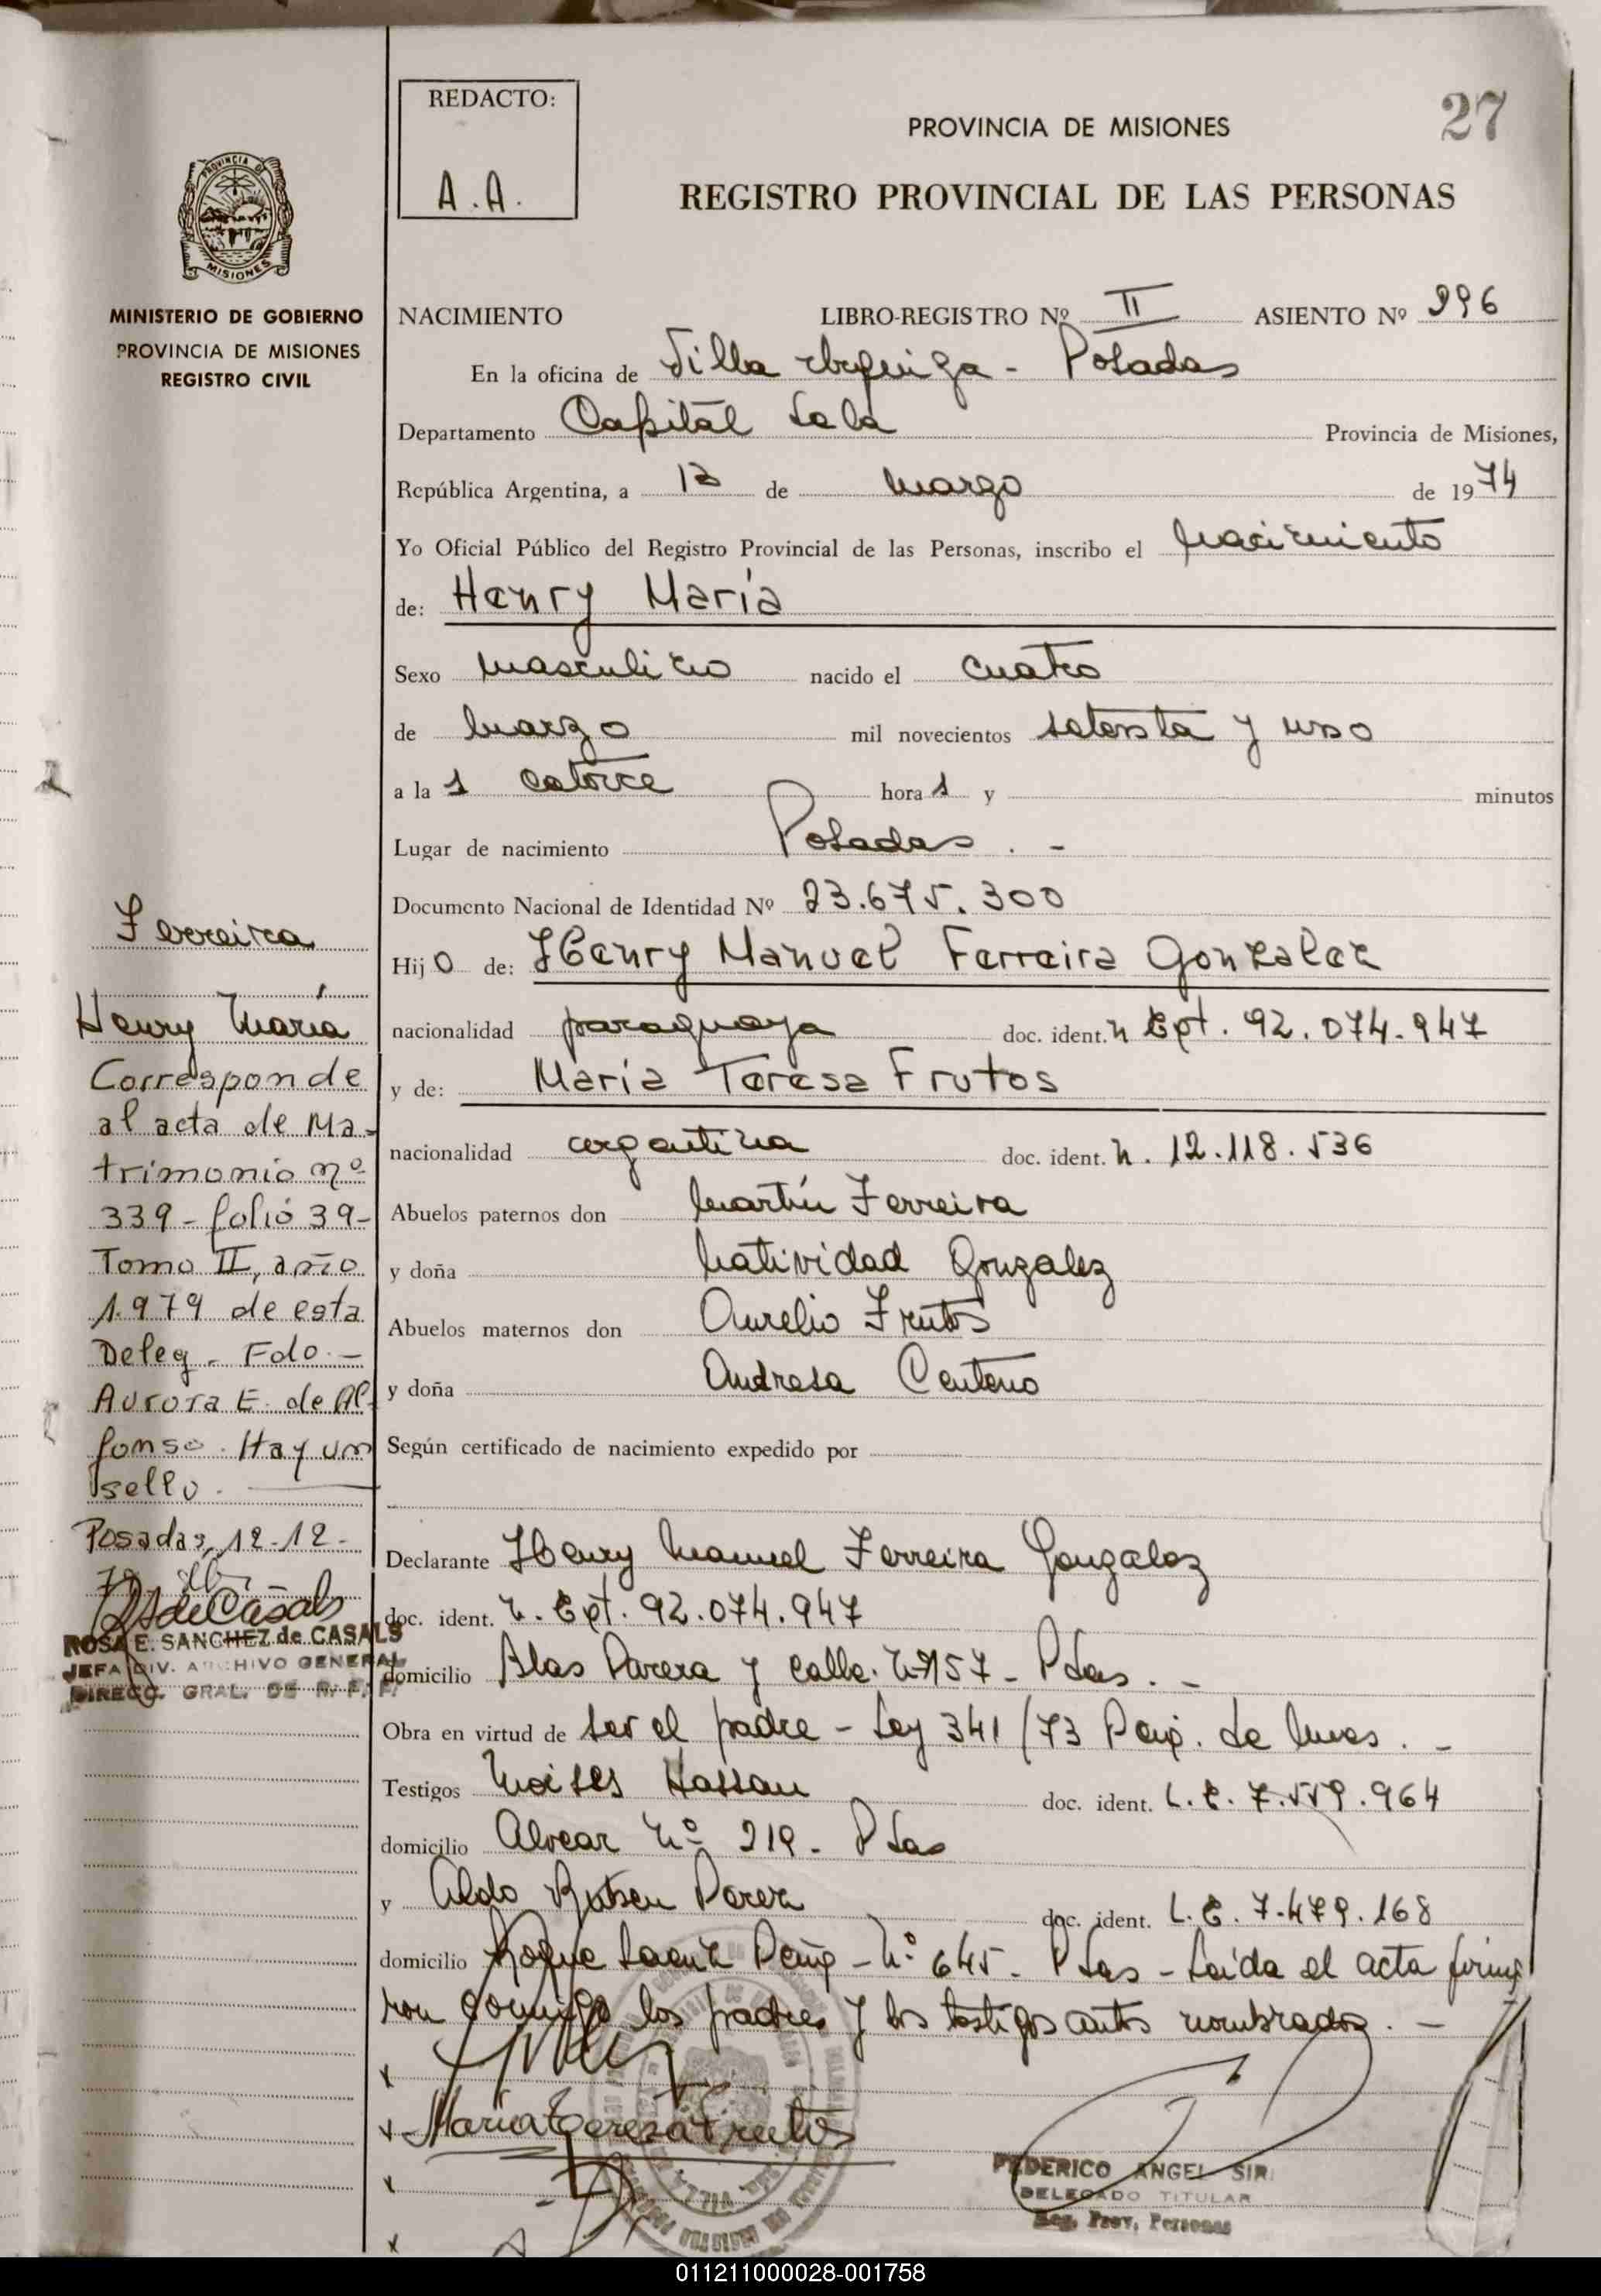 27
REDACTO:
A.A.
PROVINCIA DE MISIONES
REGISTRO PROVINCIAL DE LAS PERSONAS
PROVINCIA DE
MISIONES
MINISTERIO DE GOBIERNO
PROVINCIA DE MISIONES
REGISTRO CIVIL
NACIMIENTO LIBRO-REGISTRO Nº II ASIENTO Nº 296
En la oficina de Villa Urquiza - Posadas
Departamento Capital Provincia de Misiones,
República Argentina, a 13 de marzo de 1974
Yo Oficial Público del Registro Provincial de las Personas, inscribo el nacimiento
de: Henry María
Sexo masculino nacido el cuatro
de marzo mil novecientos setenta y uno
a las catorce horas y minutos
Lugar de nacimiento Posadas . -
Documento Nacional de Identidad Nº 23.675.300
Hijo de: Henry Manuel Ferreira Gonzalez
nacionalidad paraguaya doc. ident. 92.074.947
y de: María Teresa Frutos
nacionalidad argentina doc. ident. n. 12.118.536
Abuelos paternos don Martín Ferreira
y doña Natividad Gonzalez
Abuelos maternos don Aurelio Frutos
y doña Andresa Centeno
Según certificado de nacimiento expedido por
Declarante Henry Manuel Ferreira Gonzalez
doc. ident. 92.074.947
domicilio Blas Parera y calle. Nº 157 - Pdas . -
Obra en virtud de ser el padre - Ley 341/73
Testigos Moises Hassan doc. ident. L.E. 7.559.964
domicilio Alvear Nº 219 - Pdas
y Aldo Ruben Perez doc. ident. L.E. 7.479.168
domicilio Roque Saenz Peña - Nº 645 - Pdas - Leída el acta firma
ron conmigo los padres y los testigos antes nombrados. -
María Teresa Frutos
FEDERICO ANGEL SIRI
DELEGADO TITULAR
Reg. Prov. Personas
Ferreira
Henry María
Corresponde
al acta de Ma-
trimonio nº
339 - folio 39 -
Tomo II, año
1.979 de esta
Deleg. Fdo. -
Aurora E. de Al-
fonso. Hay un
sello.
Posadas, 12-12-
79
RSdeCasals
ROSA E. SANCHEZ de CASALS
JEFA DIV. ARCHIVO GENERAL
DIRECC. GRAL. DE R. P. P.
011211000028-001758